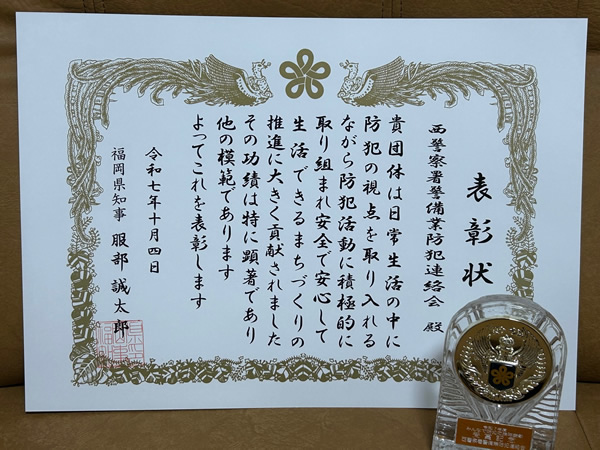 表彰状
西警察署警備業防犯連絡会 殿
貴団体は日常生活の中に
防犯の視点を取り入れる
ながら防犯活動に積極的に
取り組まれ安全で安心して
生活できるまちづくりの
推進に大きく貢献されました
その功績は特に顕著であり
他の模範であります
よってこれを表彰します
令和七年十月四日
福岡県知事 服部誠太郎